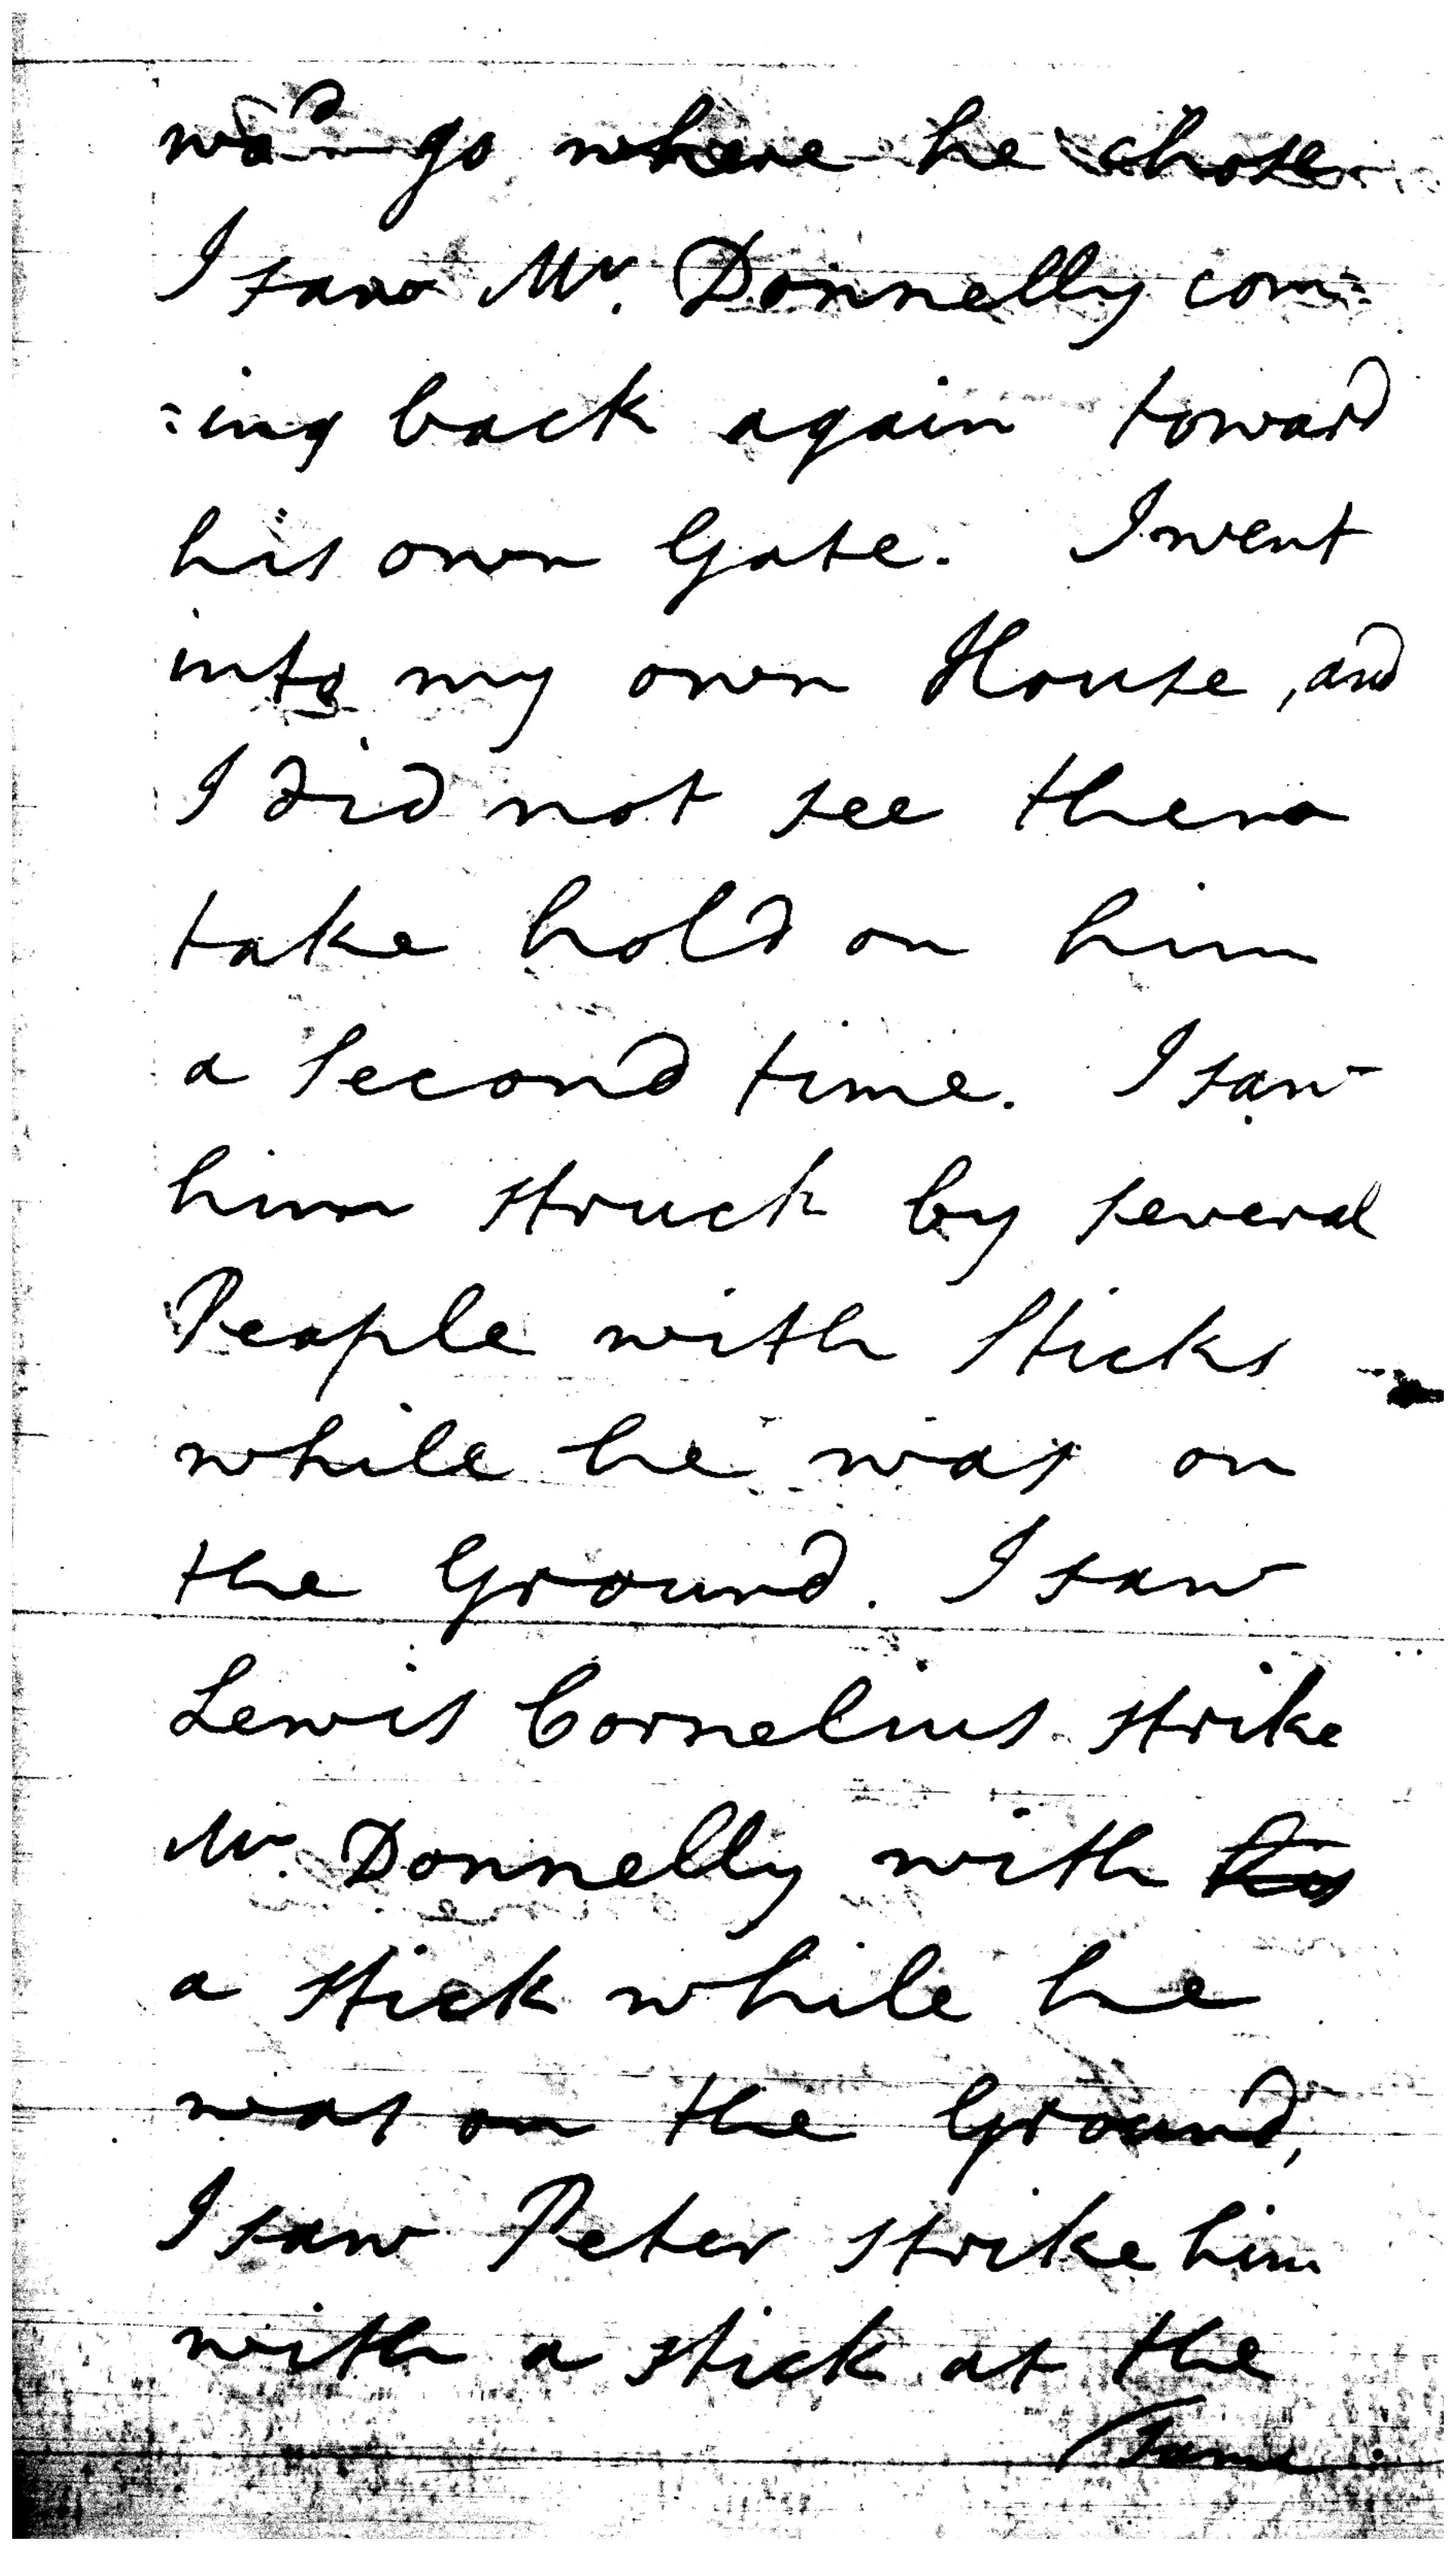 wo.d go where he chose
I saw Mr. Donnelly com=
=ing back again toward
his own Gate. I went
into my own House, and
I did not see them
take hold on him
a Second time. I saw
him struck by several
People with Sticks
while he was on
the Ground. I saw
Lewis Cornelius strike
Mr. Donnelly with
a stick while he
was on the Ground,
I saw Peter strike him
with a stick at the
Same